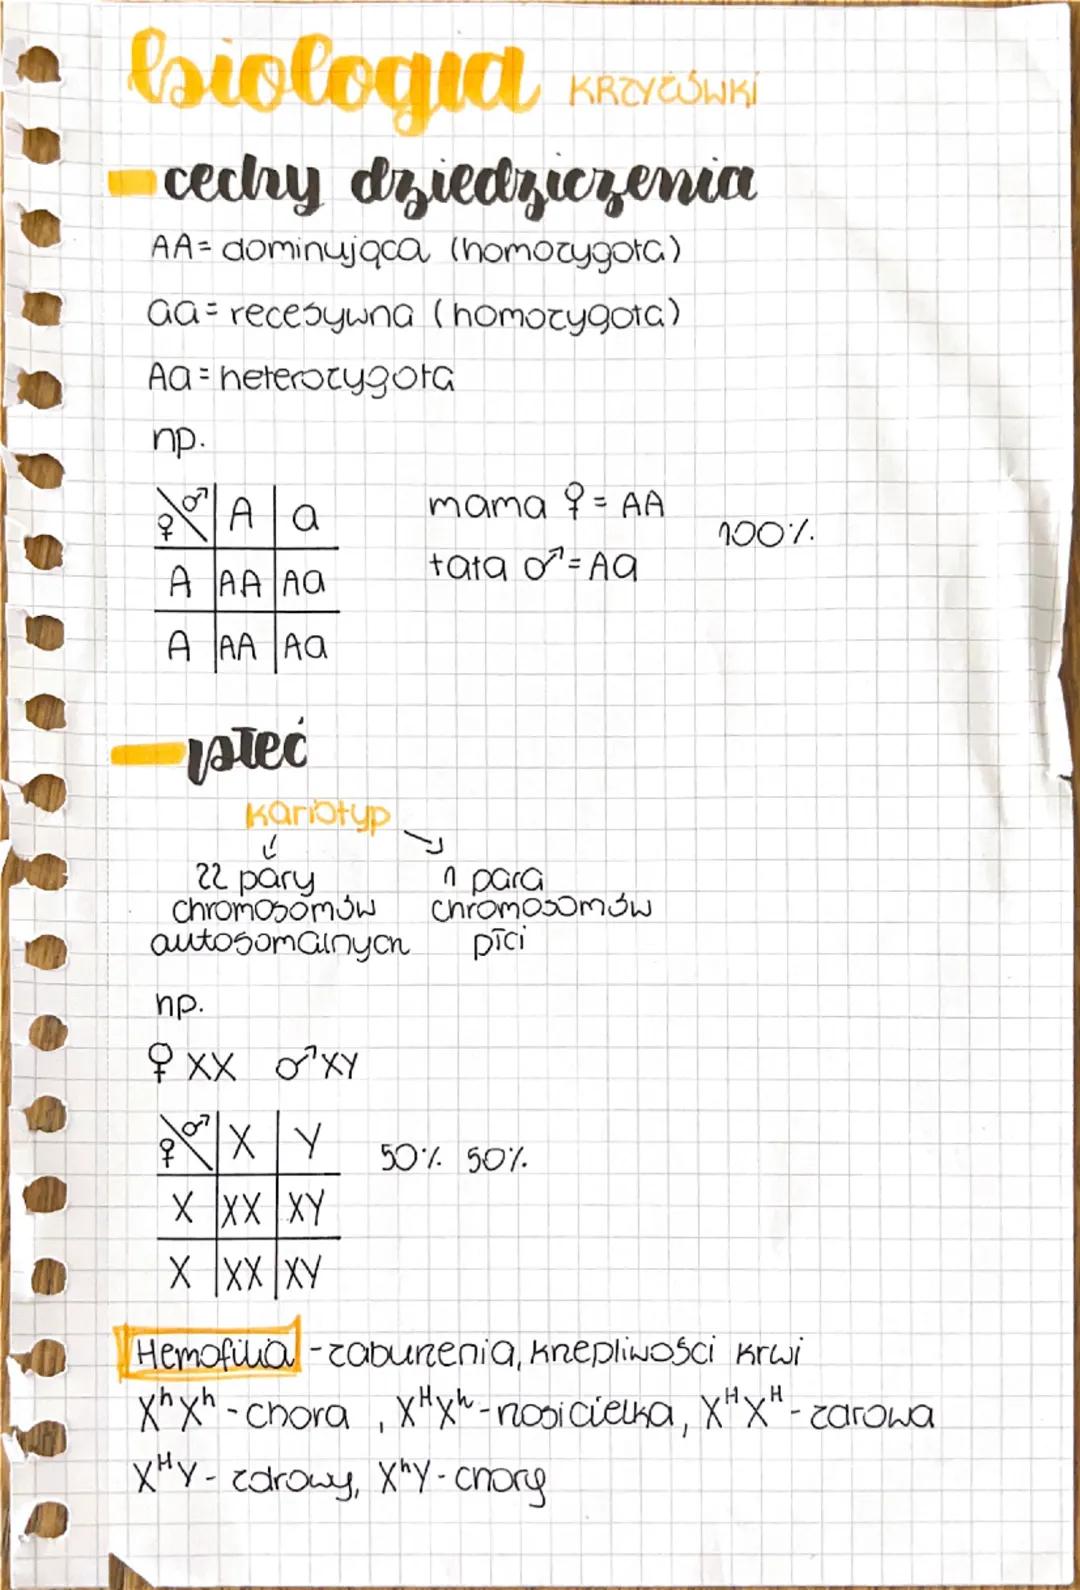 biologia KRZYŻÓWKI
cechy dziedziczenia
AA= dominująca (homozygota)
aa= recesywna (homozygota)
Aa= heterozygota
np.
♀ \ ♂ | A | a
A | AA | Aa
A | AA | Aa
mama ♀ = AA
tata ♂ = Aa
100%
płeć
kariotyp
22 pary
chromosomów
autosomalnych
1 para
chromosomów
płci
np.
♀ XX ♂ XY
♀ \ ♂ | X | Y
X | XX | XY
X | XX | XY
50% 50%
Hemofilia - zaburzenia, krzepliwości krwi
XʰXʰ - chora , XᴴXʰ - nosicielka, XᴴXᴴ - zdrowa
XᴴY - zdrowy, XʰY - chory